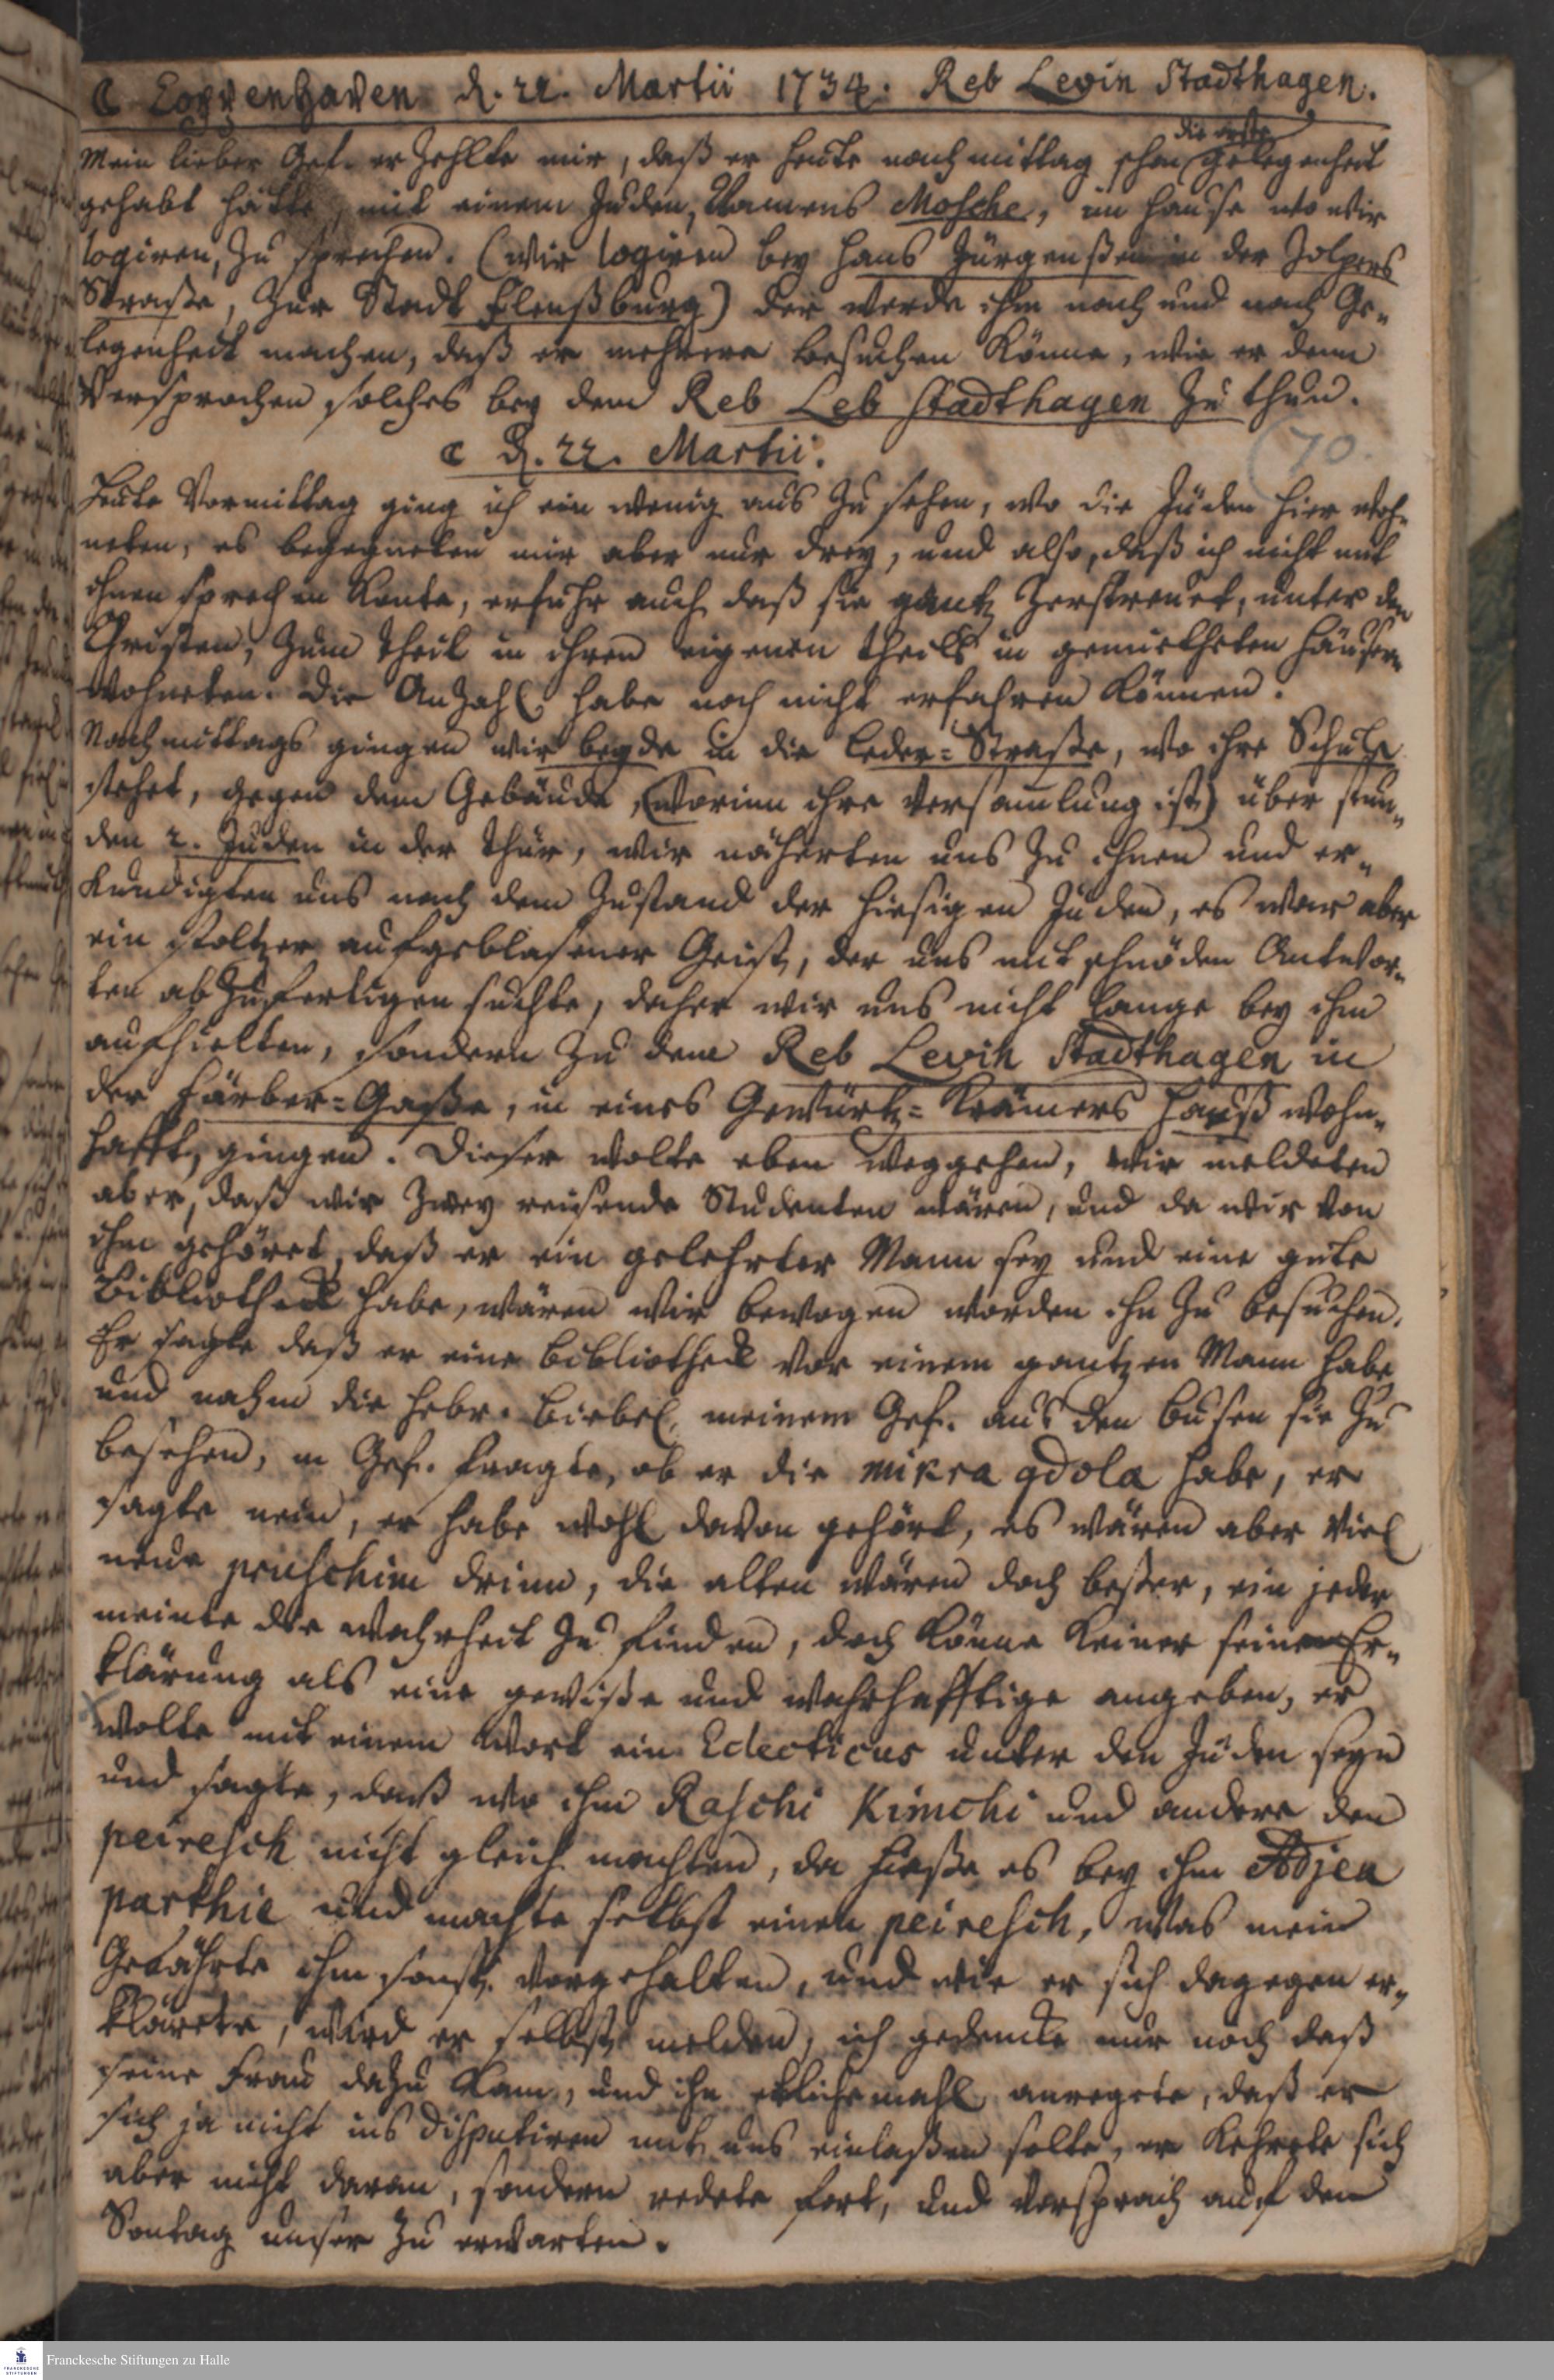 ☾ Coppenhaven d. 22. Martii 1734. Reb Levin Stadthagen.
die erste
Mein lieber Gef. erzehlte mir, daß er heute nachmittag schon gelegenheit
gehabt hätte, mit einem Juden, Namens Mosche, im Hause wo wir
logiren, zu sprechen. (wir logiren bey Hans Jürgenßen in der
Straße, zur Stadt Flenßburg) der werde ihm nach und nach Ge-
legenheit machen, daß er mehrere besuchen könne, wie er denn
Versprochen solches bey dem Reb Leb Stadthagen zu thun.
☾ d. 22. Martii.
(70.
Heute Vormittag ging ich ein wenig aus zu sehen, wo die Juden hier woh-
neten, es begegneten mir aber nur drey, und also, daß ich nicht mit
ihnen sprechen konte, erfuhr auch daß sie gantz zerstreuet, unter den
Christen, zum theil in ihren eigenen theils in gemietheten Häusern
wohneten. Die Anzahl habe noch nicht erfahren können.
Nachmittags gingen wir beyde in die Leder-Straße, wo ihre Schule
stehet, gegen dem Gebäude, (worinn ihre Versamlung ist) über stun-
den 2. Juden in der Thür, wir näherten uns zu ihnen und er-
kundigten uns nach dem Zustand der hiesigen Juden, es war aber
ein stoltzer aufgeblasener Geist, der uns mit schnöden Antwor-
ten abzufertigen suchte, daher wir uns nicht lange bey ihm
aufhielten, sondern zu dem Reb Levin Stadthagen in
der Färber-Gaße, in eines Gewürtz-Krämers Hauß wohn-
hafft, gingen. Dieser wolte eben weggehen, wir meldeten
aber, daß wir zwey reisende Studenten wären, und da wir von
ihm gehöret, daß er ein gelehrter Mann sey und eine gute
Bibliotheck habe, wären wir bewogen worden ihn zu besuchen.
Er sagte daß er eine Bibliotheck vor einem gantzen Mann habe
und nahm die hebr. Biebel, meinem Gef. aus den Busen sie zu
besehen, m Gef. fragte, ob er die mikra gdola habe, er
sagte nein, er habe wohl davon gehört, es wären aber viel
neue peruschim drinn, die alten wären doch beßer, ein jeder
meinte die Wahrheit zu finden, doch könne keiner seine Er-
klärung als eine gewiße und wahrhafftige angeben, er
wolte mit einem Wort ein Eclecticus unter den Juden seyn
und sagte, daß wo ihm Raschi Kimchi und andere den
peiresch nicht gleich machten, da hieße es bey ihm
und machte selbst einen peiresch, was mein
Gefährte ihm sonst vorgehalten, und wie er sich dagegen er-
klärete, wird er selbst melden, ich gedencke nur noch daß
seine Frau dazu kam, und ihn etlichemahl anregete, daß er
sich ja nicht ins Disputiren mit uns einlaßen solte, er kehrete sich
aber nicht daran, sondern redete fort, und versprach auf den
Sontag unser zu erwarten.
Franckesche Stiftungen zu Halle